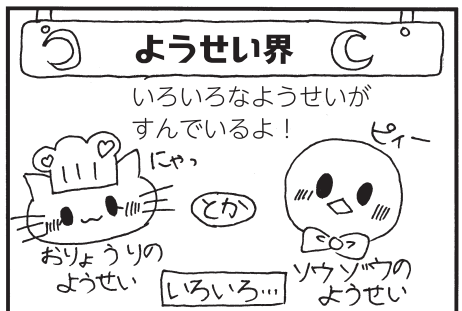 ようせい界
いろいろなようせいが
すんでいるよ！
にゃっ
ピィー
とか
おりょうりの
ようせい
ソウゾウの
ようせい
いろいろ…